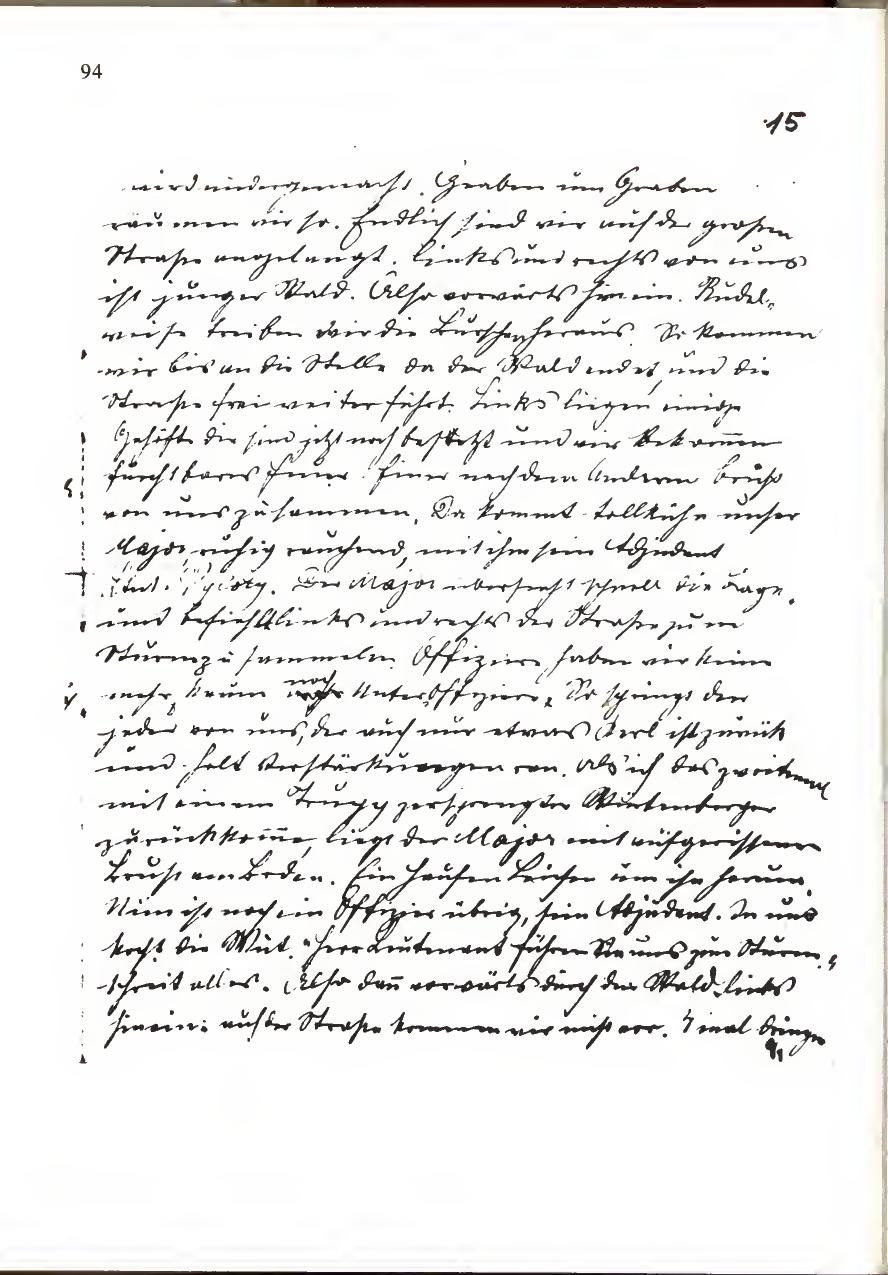 94
15
wird niedergemacht. Graben um Graben
räumen wir so. Endlich sind wir auf der großen
Straße angelangt. Links und rechts von uns
ist junger Wald. Also vorwärts hinein. Rudel-
weise treiben wir die Burschen heraus. So kommen
wir bis an die Stelle da der Wald endet, und die
Straße frei weiter führt. Links liegen einige
Gehöfte die sind jetzt noch besetzt und wir bekommen
furchtbares Feuer. Einer nach dem Anderen bricht
von uns zusammen. Da kommt tollkühn unser
Major, ruhig rauchend, mit ihm sein Adjudant
Der Major übersieht schnell die Lage
und befiehlt links und rechts der Straße zum
Sturm zu sammeln. Offiziere haben wir keine
mehr, kaum noch Unteroffiziere. So springt denn
jeder von uns, der auch nur etwas Kerl ist zurück
und holt Verstärkungen ran. Als ich das zweitemal
mit einem Trupp zersprengter Würtenberger
zurückkomme, liegt der Major mit aufgerissener
Brust am Boden. Ein Haufen Leichen um ihn herum.
Nun ist noch ein Offizier übrig, sein Adjudant. In uns
kocht die Wut. "Herr Leutnant führen Sie uns zum Sturm"
schreit alles. Also dann vorwärts durch den Wald links
hinein: auf der Straße kommen wir nicht vor. 4 mal dringen